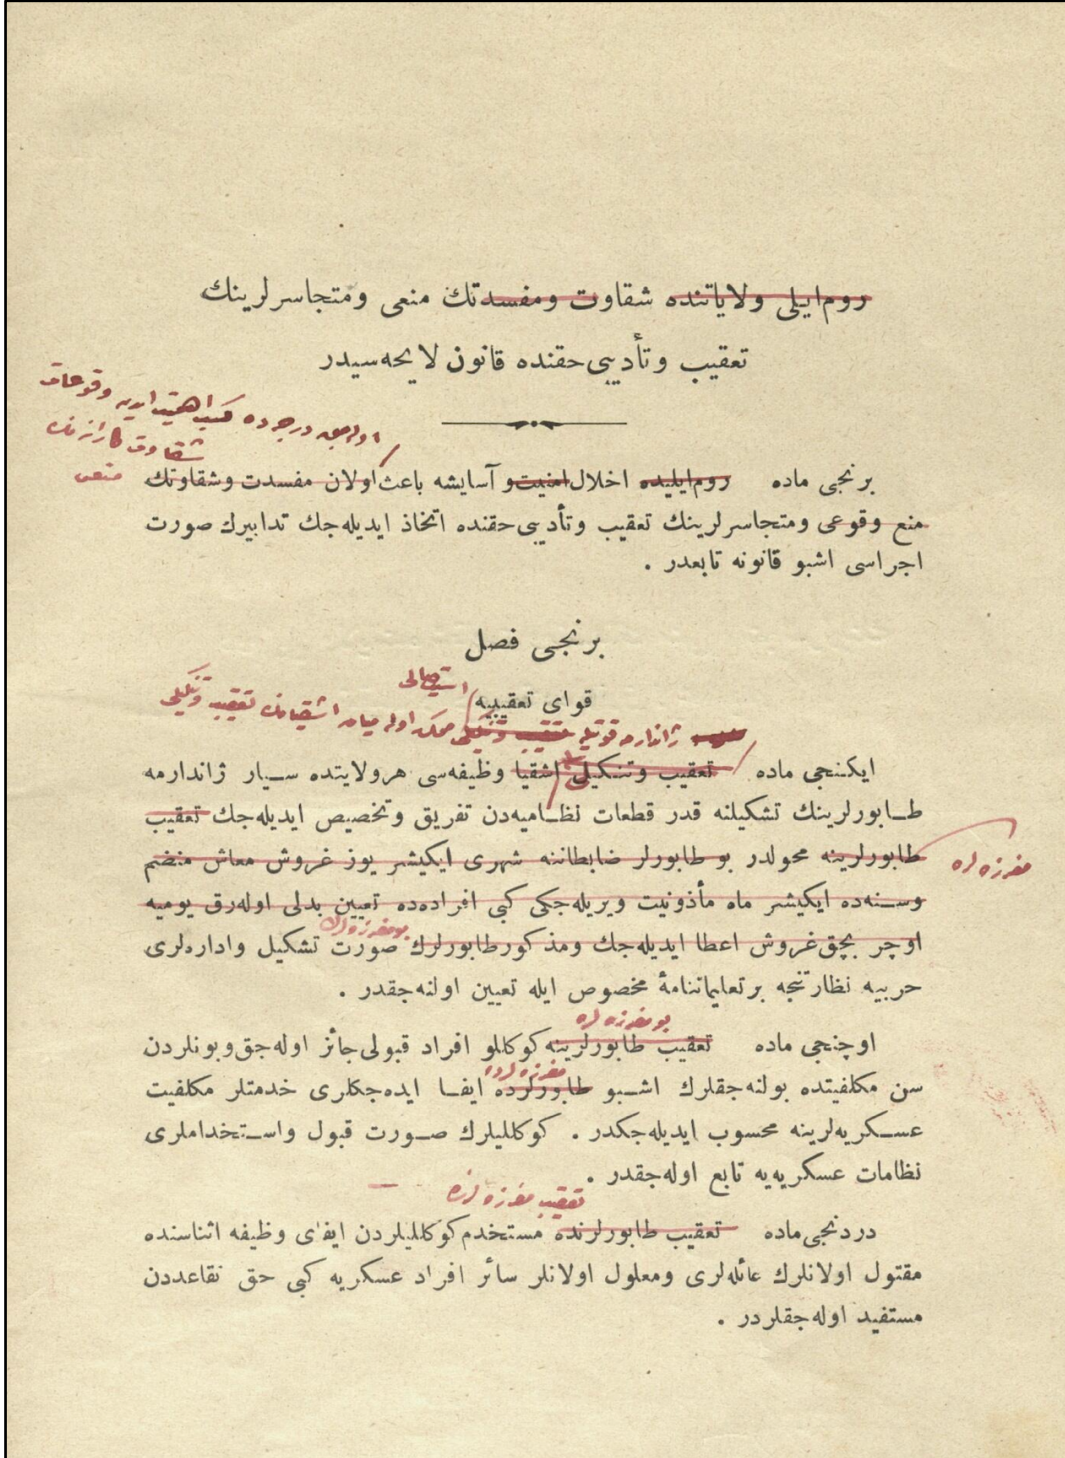 روم‌ایلی ولایاتنده شقاوت ومفسدتك منعی ومتجاسرلرینك
تعقیب وتأدیبی حقنده قانون لایحه‌سیدر
اوله‌جق درجه‌ده كسب اهمیت ایدن وقوعات
شقاوتكارانه‌نك
منعی
برنجی ماده روم‌ایلیده اخلال امنیت و آسایشه باعث اولان مفسدت وشقاوتك
منع وقوعی ومتجاسرلرینك تعقیب وتأدیبی حقنده اتخاذ ایدیله‌جك تدابیرك صورت
اجراسی اشبو قانونه تابعدر .
برنجی فصل
قوای تعقیبیه
ژاندارمه قوتیله ممكن اوله‌میان اشقیانك تعقیب وتنكیلی
ایكنجی ماده تعقیب وتنكیل اشقیا وظیفه‌سی هرولایتده سیار ژاندارمه
طابورلرینك تشكیلنه قدر قطعات نظامیه‌دن تفریق وتخصیص ایدیله‌جك تعقیب
مفرزه‌لره
طابورلرینه محولدر بو طابورلر ضابطاننه شهری ایكیشر یوز غروش معاش منضم
وسنه‌ده ایكیشر ماه مأذونیت ویریله‌جكی كبی افراده‌ده تعیین بدلی اوله‌رق یومیه
بومفرزه‌لرك
اوچر بچق غروش اعطا ایدیله‌جك ومذكور طابورلرك صورت تشكیل واداره‌لری
حربیه نظارتنجه برتعلیماتنامهٔ مخصوص ایله تعیین اولنه‌جقدر .
بو مفرزه‌لره
اوچنجی ماده تعقیب طابورلرینه كوكللو افراد قبولی جائز اوله‌جق وبونلردن
مفرزه‌لرده
سن مكلفیتده بولنه‌جقلرك اشبو طابورلرده ایفا ایده‌جكلری خدمتلر مكلفیت
عسكریه‌لرینه محسوب ایدیله‌جكدر . كوكللیلرك صورت قبول واستخداملری
نظامات عسكریه‌یه تابع اوله‌جقدر .
تعقیب مفرزه‌لرنده
دردنجی ماده تعقیب طابورلرنده مستخدم كوكللیلردن ایفای وظیفه اثناسنده
مقتول اولانلرك عائله‌لری ومعلول اولانلر سائر افراد عسكریه كبی حق تقاعددن
مستفید اوله‌جقلردر .